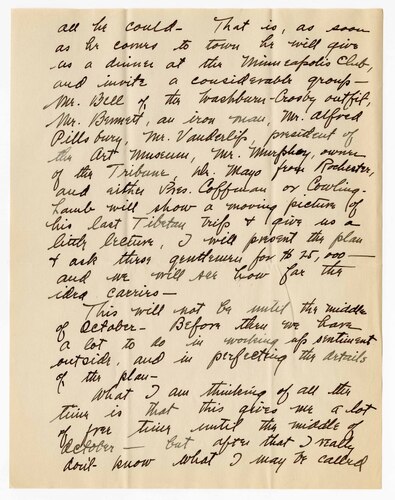 all he could - That is, as soon
as he comes to town he will give
us a dinner at the Minneapolis Club,
and invite a considerable group -
Mr. Bell of the Washburn-Crosby outfit,
Mr. Bennett, an iron man, Mr. Alfred
Pillsbury, Mr. Vanderlip president of
the Art Museum, Mr. Murphy, owner
of the Tribune, Dr. Mayo from Rochester,
and either Pres. Coffman or Cowling.
Lamb will show a moving picture of
his last Tibetan trip & give us a
little lecture, I will present the plan
& ask these gentlemen for $25,000 -
and we will see how far the
idea carries -
This will not be until the middle
of October - Before then we have
a lot to do in working up sentiment
outside, and in perfecting the details
of the plan -
What I am thinking of all the
time is that this gives me a lot
of free time until the middle of
October - but after that I really
don't know what I may be called